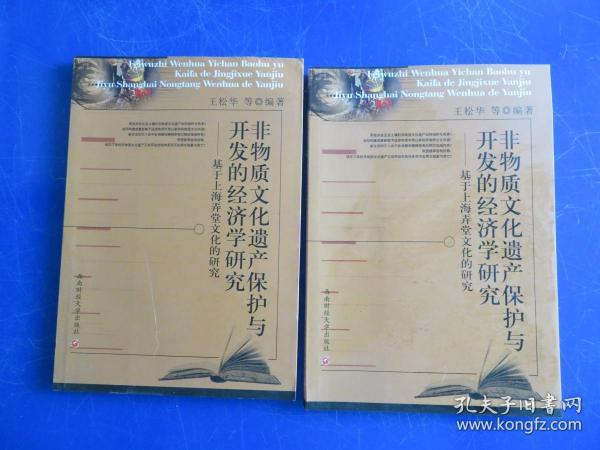 Feiwuzhi Wenhua Yichan Baohu yu
Kaifa de Jingjixue Yanjiu
Jiyu Shanghai Nongtang Wenhua de Yanjiu
王松华 等◎编著
非物质文化遗产保护与
开发的经济学研究
——基于上海弄堂文化的研究
西南财经大学出版社
Feiwuzhi Wenhua Yichan Baohu yu
Kaifa de Jingjixue Yanjiu
Jiyu Shanghai Nongtang Wenhua de Yanjiu
王松华 等◎编著
非物质文化遗产保护与
开发的经济学研究
——基于上海弄堂文化的研究
西南财经大学出版社
孔夫子旧书网
www.kongfz.com